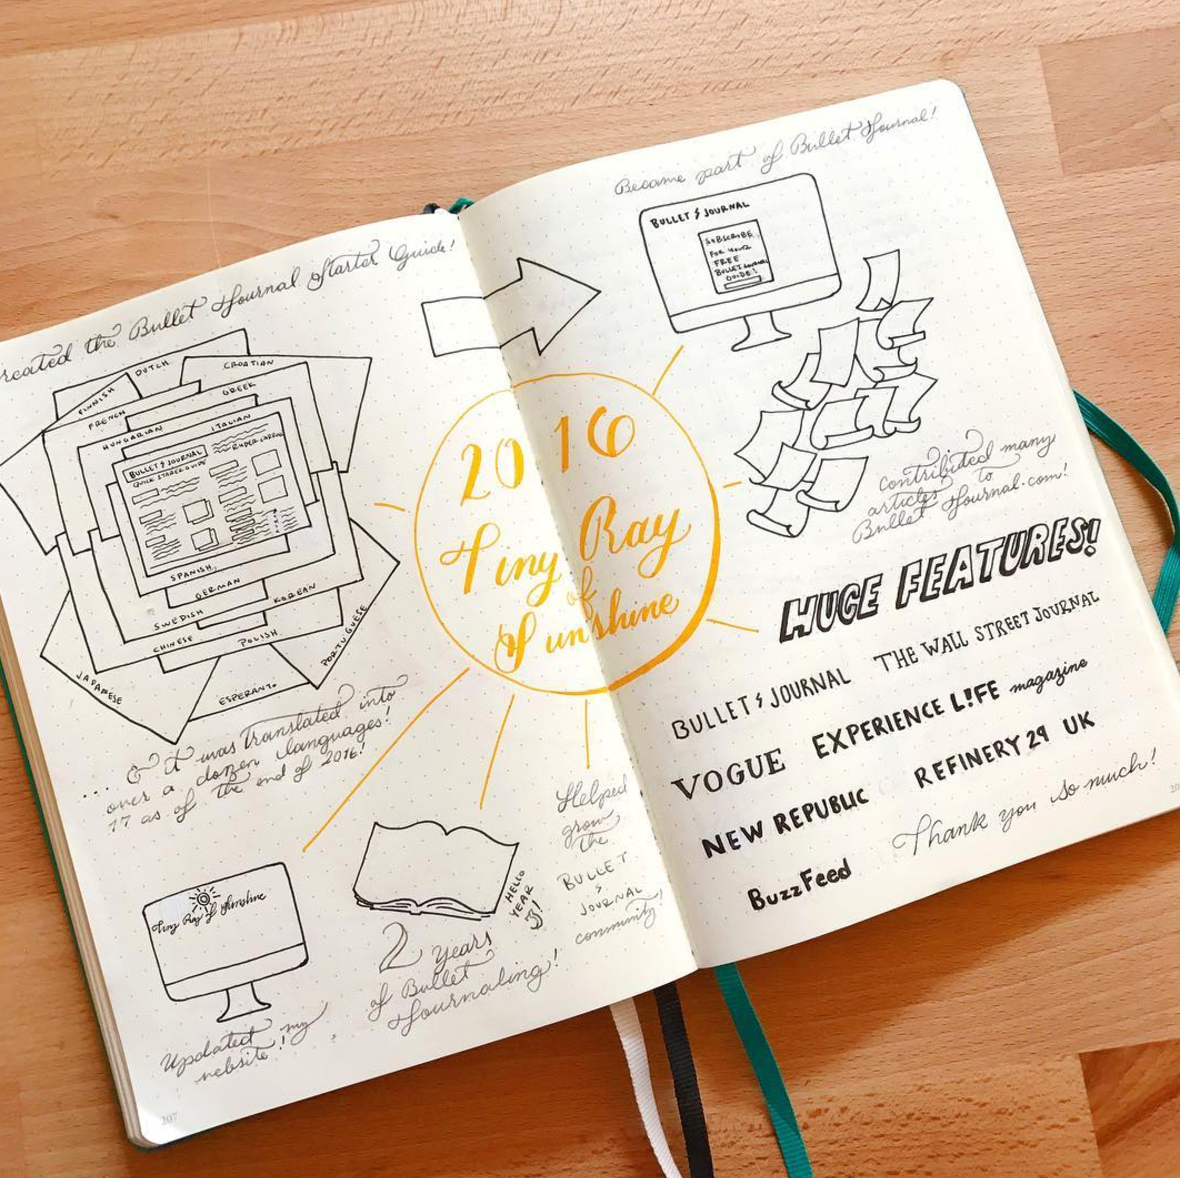 Created the Bullet Journal Starter Guide!
FINNISH
DUTCH
CROATIAN
FRENCH
GREEK
HUNGARIAN
ITALIAN
BULLET JOURNAL
QUICK STARTER GUIDE
SPANISH
GERMAN
SWEDISH
KOREAN
CHINESE
POLISH
PORTUGUESE
JAPANESE
ESPERANTO
... & it was translated into
over a dozen languages
17 as of the end of 2016!
2016
Tiny Ray
of
Sunshine
Tiny Ray of Sunshine
Updated my
website!
HELLO
YEAR
3!
2 years
of Bullet
Journaling!
Helped
grow
the
BULLET
JOURNAL
community!
207
Became part of Bullet Journal!
BULLET JOURNAL
SUBSCRIBE
FOR YOUR
FREE
BULLET JOURNAL
GUIDE!
contributed many
articles to
Bullet Journal.com!
HUGE FEATURES!
BULLET JOURNAL THE WALL STREET JOURNAL
VOGUE EXPERIENCE L!FE magazine
NEW REPUBLIC REFINERY 29 UK
BuzzFeed Thank you so much!